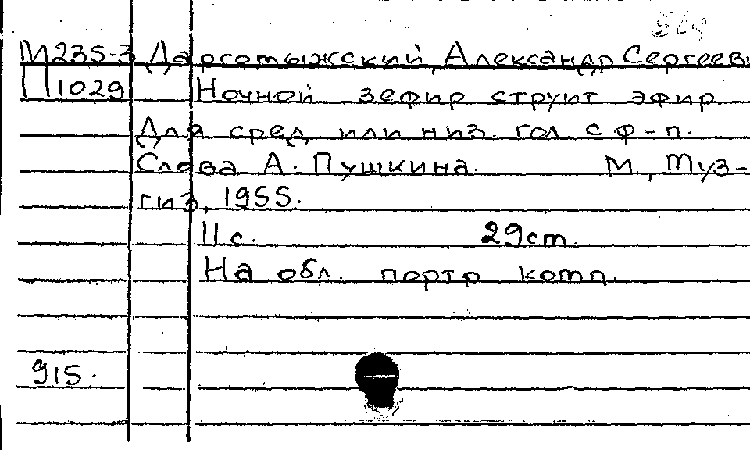 М235-3 Даргомыжский, Александр Сергееви
П1029 Ночной зефир струит эфир.
Для сред. или низ. гол. с ф-п.
Слова А. Пушкина. М., Муз-
гиз, 1955.
11 с. 29 cm.
На обл. портр. комп.
915.